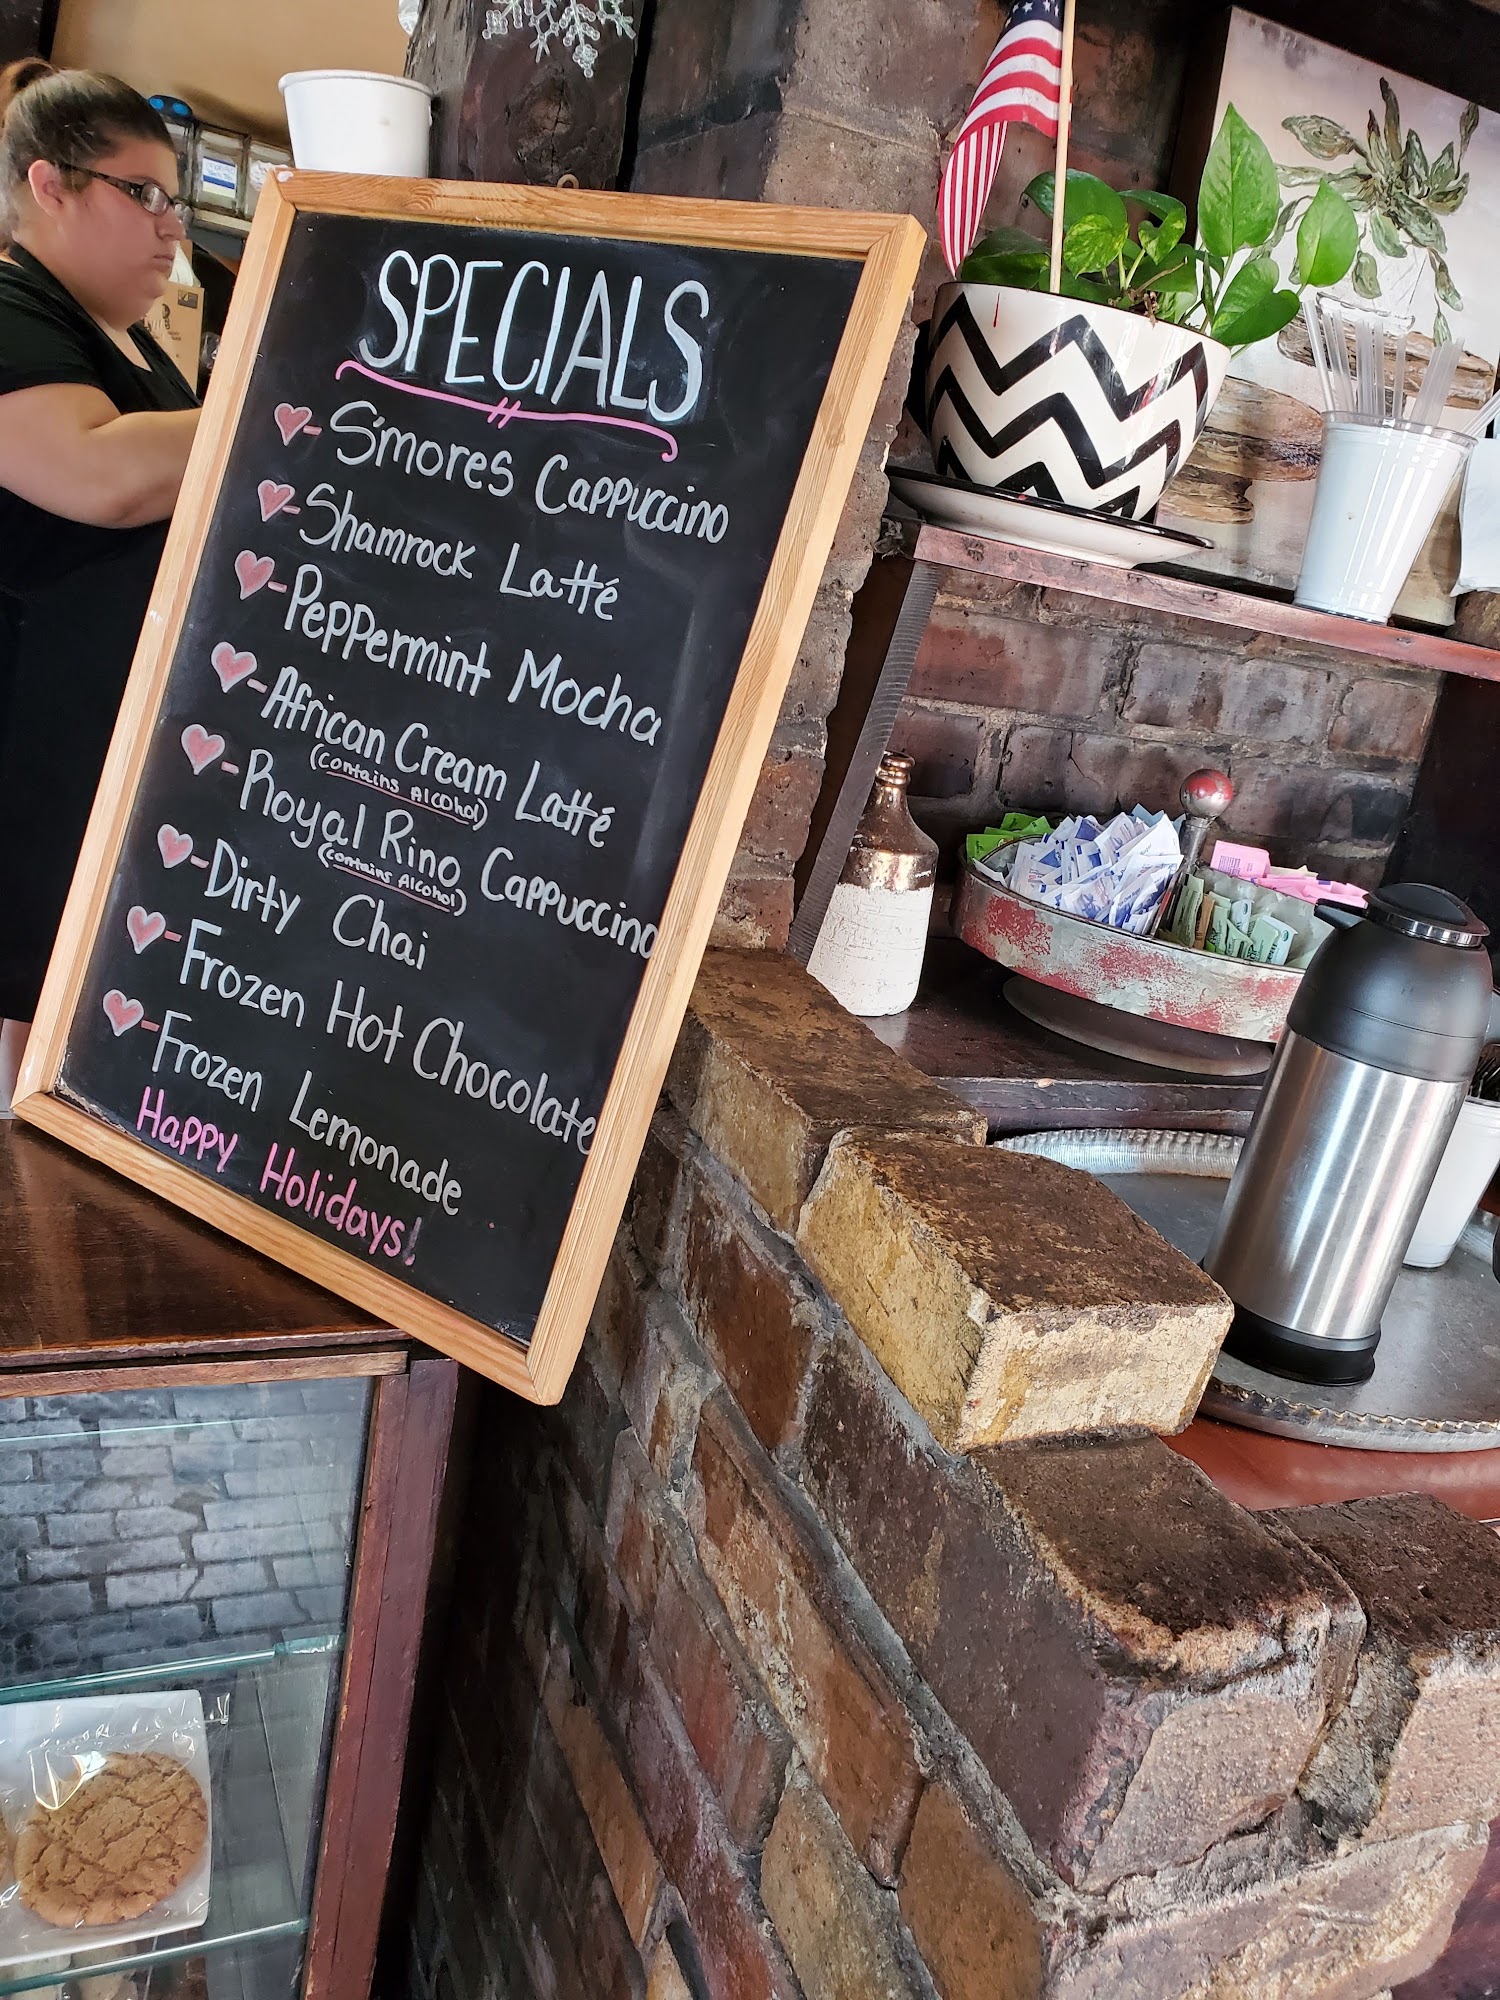 SPECIALS
- S'mores Cappuccino
- Shamrock Latté
- Peppermint Mocha
- African Cream Latté
(contains Alcohol)
- Royal Rino Cappuccino
(contains Alcohol)
- Dirty Chai
- Frozen Hot Chocolate
- Frozen Lemonade
Happy Holidays!